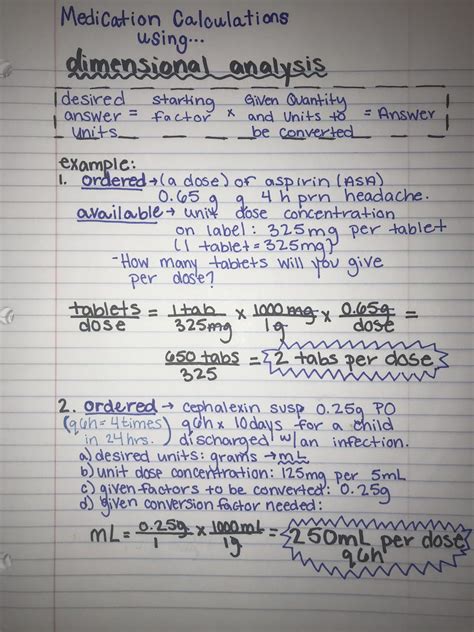 Medication Calculations
using...
dimensional analysis
desired starting Given Quantity
answer = factor x and units to = Answer
units be converted
example:
1. ordered → (a dose) of aspirin (ASA)
0.65 g q 4 h prn headache.
available → unit dose concentration
on label: 325mg per tablet
(1 tablet = 325mg)
- How many tablets will you give
per dose?
tablets/dose = 1 tab/325mg x 1000mg/1g x 0.65g/dose =
650 tabs/325 = 2 tabs per dose
2. ordered → cephalexin susp 0.25g PO
(q6h = 4 times q6h x 10 days for a child
in 24hrs.) discharged w/ an infection.
a) desired units: grams → mL
b) unit dose concentration: 125mg per 5mL
c) given factors to be converted: 0.25g
d) given conversion factor needed:
mL = 0.25g/1 x 1000mL/1g = 250mL per dose
q6h